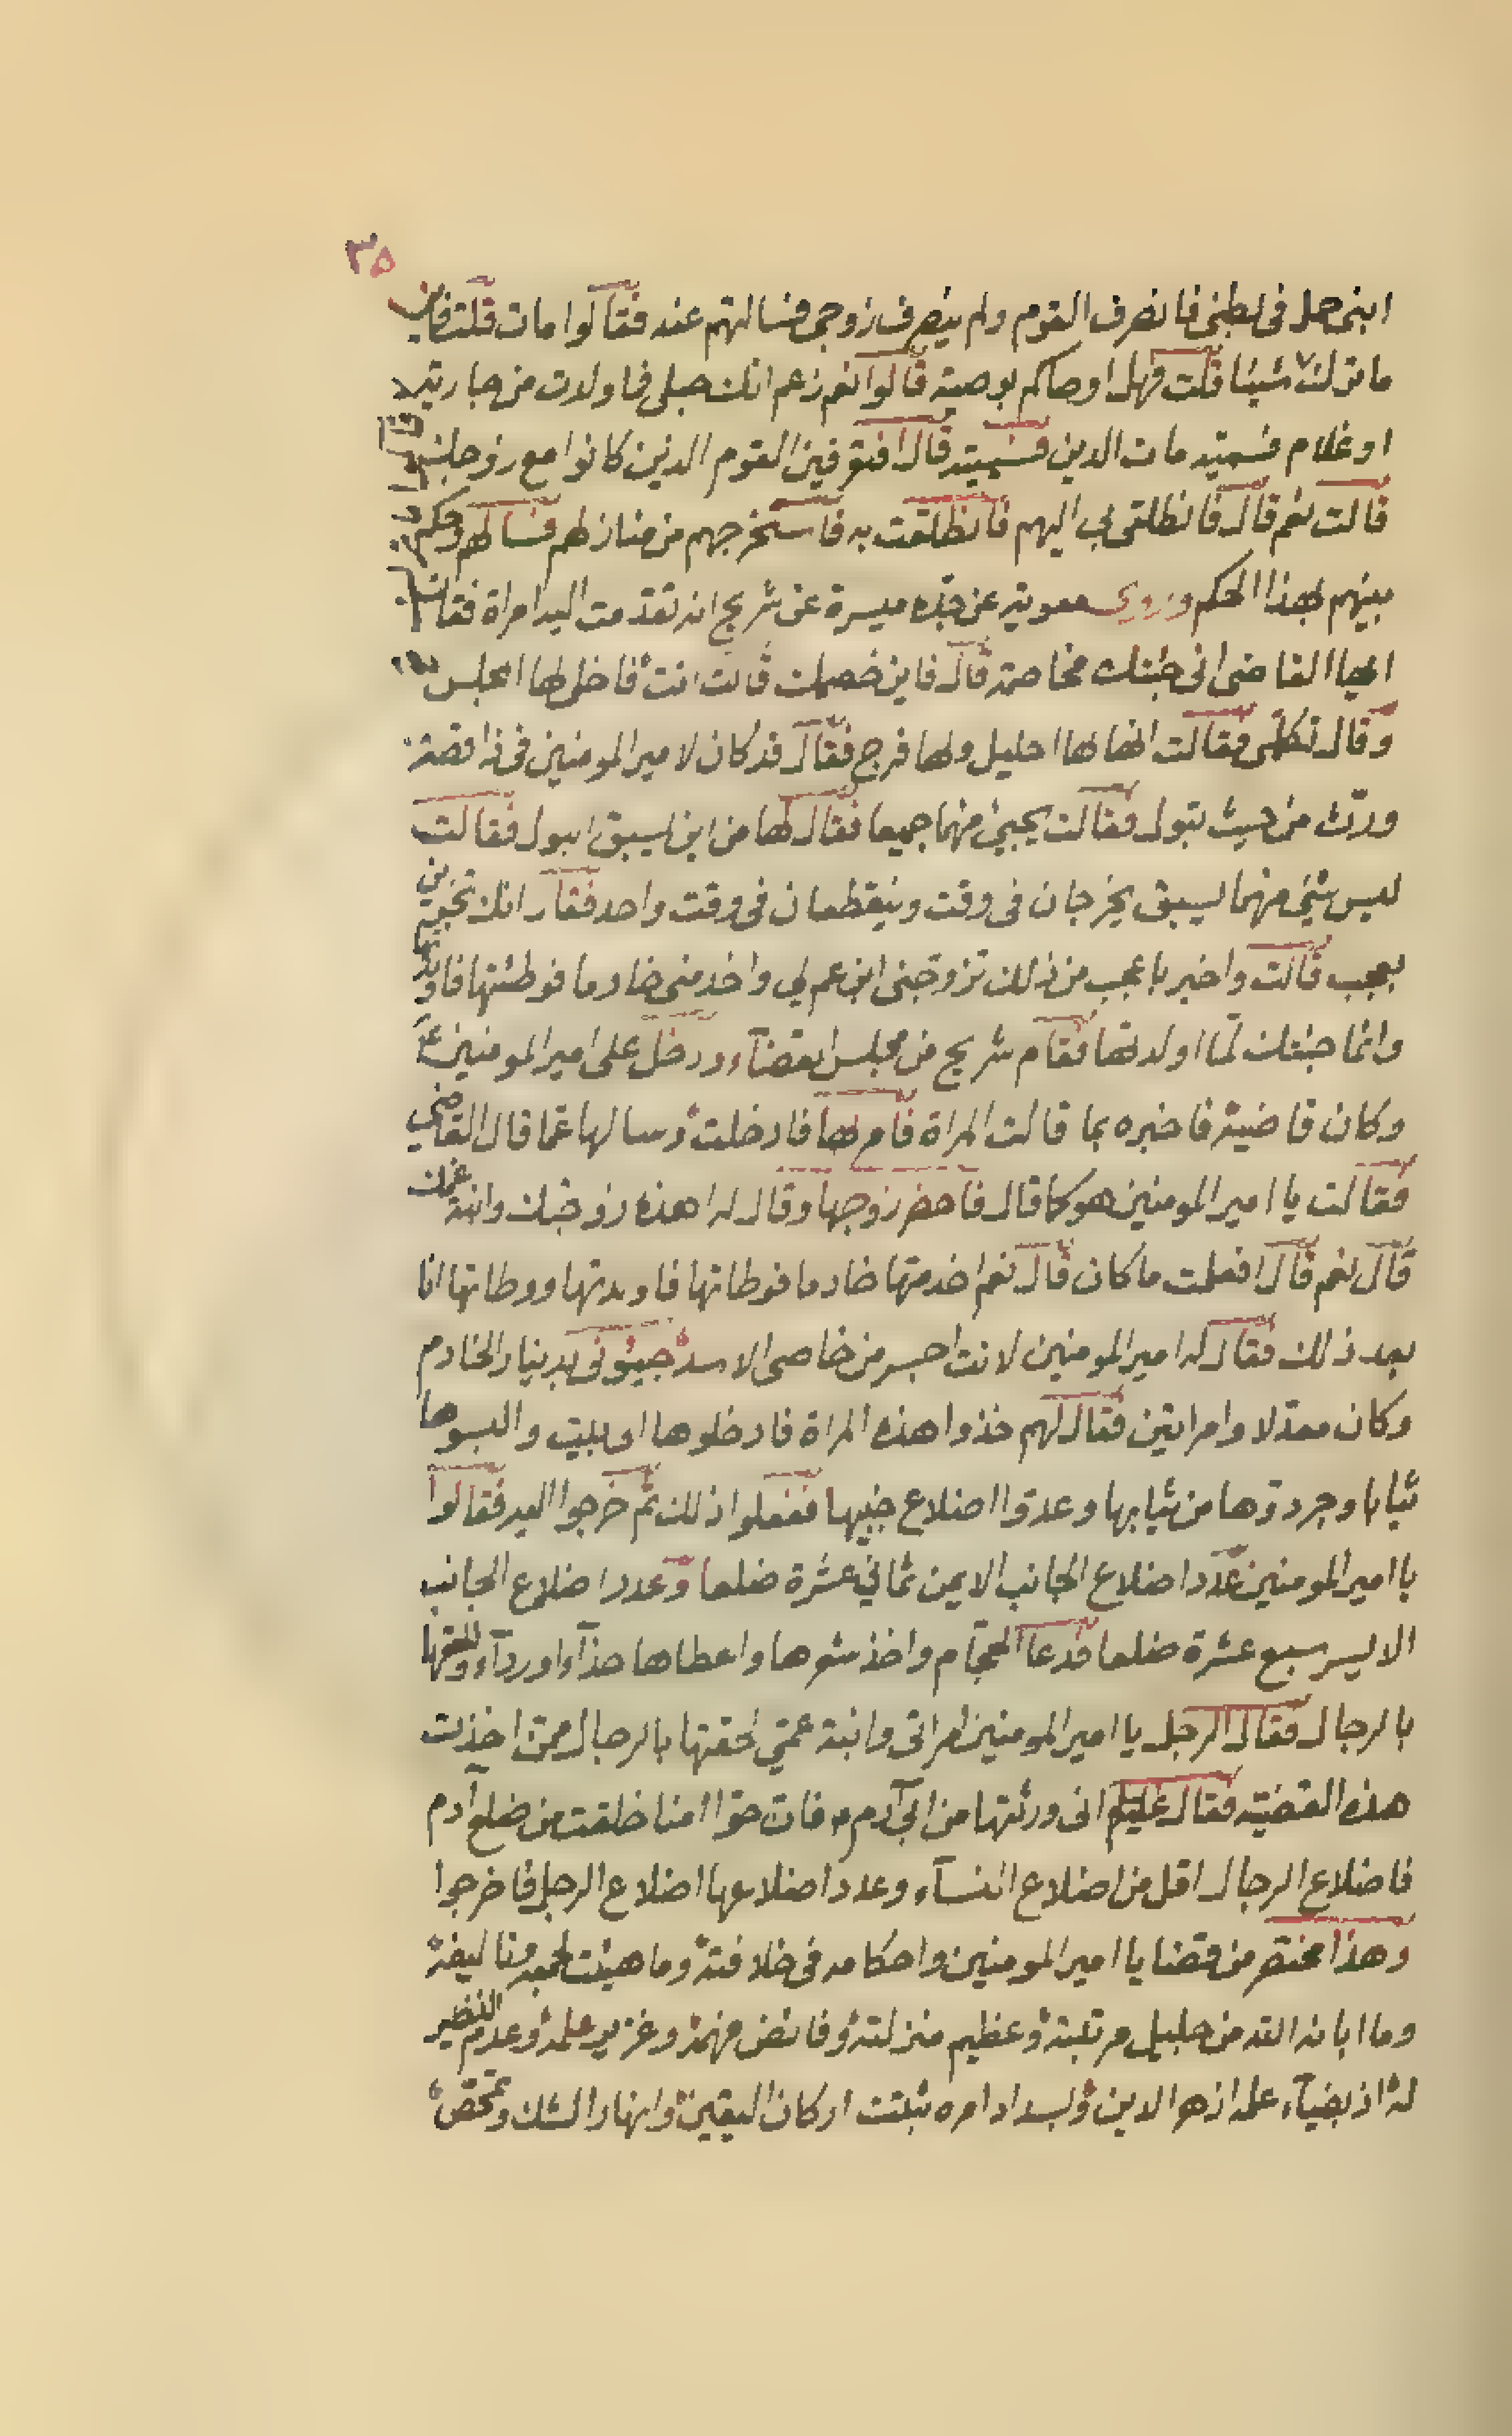 ٣٥
ابنى حمل فى بطنى فانصرف القوم ولم ينصرف زوجى فسالتهم عنه فقالوا مات قلت فاين
ما ترك شيئا قلت فهل اوصاكم بوصية قالوا نعم زعم انك حبلى فما ولدت من جارية
او غلام فسميه مات الدين فسميته قال افتعرفين القوم الذين كانوا مع زوجك
قالت نعم قال فانطلقى بى اليهم فانطلقت به فاستخرجهم من منازلهم فسالهم وحكم
بينهم بهذا الحكم وروى معوية عن جده ميسرة عن شريح انه تقدمت اليه امراة فقالت
ايها القاضى انى جئتك مخاصمة قال فاين خصمك قالت انت فاخلى لها المجلس
وقال تكلمى فقالت انها لها احليل ولها فرج فقال قد كان لامير المومنين فى ذا قصة
ورث من حيث تبول فقالت يجيئ منهما جميعا فقال لها من اين يسبق البول فقالت
ليس شئ منهما يسبق يخرجان فى وقت وينقطعان فى وقت واحد فقال انك تخبرينى
بعجب قالت واخبر باعجب من ذلك تزوجنى ابن عم لى واخدمنى خادما فوطئتها فاولدتها
وانما جئتك لما اولدتها فقام شريح من مجلس القضآء ودخل على امير المومنين ع
وكان قاضية فاخبره بما قالت المراة فامر بها فادخلت وسالها عما قال القاضى
فقالت يا امير المومنين هو كما قال فاحضر زوجها وقال له اهذه زوجتك وابنة عمك
قال نعم قال افعلمت ما كان قال نعم اخدمتها خادما فوطاتها فاولدتها ووطاتها انا
بعد ذلك فقال له امير المومنين لانت اجسر من خاصى الاسد جيئونى بدينار الخادم
وكان معدلا وامراتين فقال لهم خذوا هذه المراة فادخلوها الى البيت والبسوها
ثيابا وجردوها من ثيابها وعدوا اضلاع جنبيها ففعلوا ذلك ثم خرجوا اليه فقالوا
يا امير المومنين عدد اضلاع الجانب الايمن ثمانى عشرة ضلعا وعدد اضلاع الجانب
الايسر سبع عشرة ضلعا فدعا الحجام واخذ شعرها واعطاها حذآء وردآء والحقها
بالرجال فقال الرجل يا امير المومنين امراتى وابنة عمى الحقتها بالرجال ممن اخذت
هذه القضية فقال عليلم انى ورثتها من ابى آدم م فان حوا امنا خلقت من ضلع آدم
فاضلاع الرجال اقل من اضلاع النسآء وعدد اضلاعها اضلاع الرجل فاخرجوا
وهذا مختصر من قضايا امير المومنين واحكامه فى خلافته وما هيئت لجمعه وتاليفه
وما ابانه الله من جليل مرتبته وعظيم منزلته وفائض فهمه وغزير علمه وعدم النضير
له اذ بضيآء علمه ازهر الدين وبسداد امره ثبتت اركان اليقين وانهار الشك وتمحص